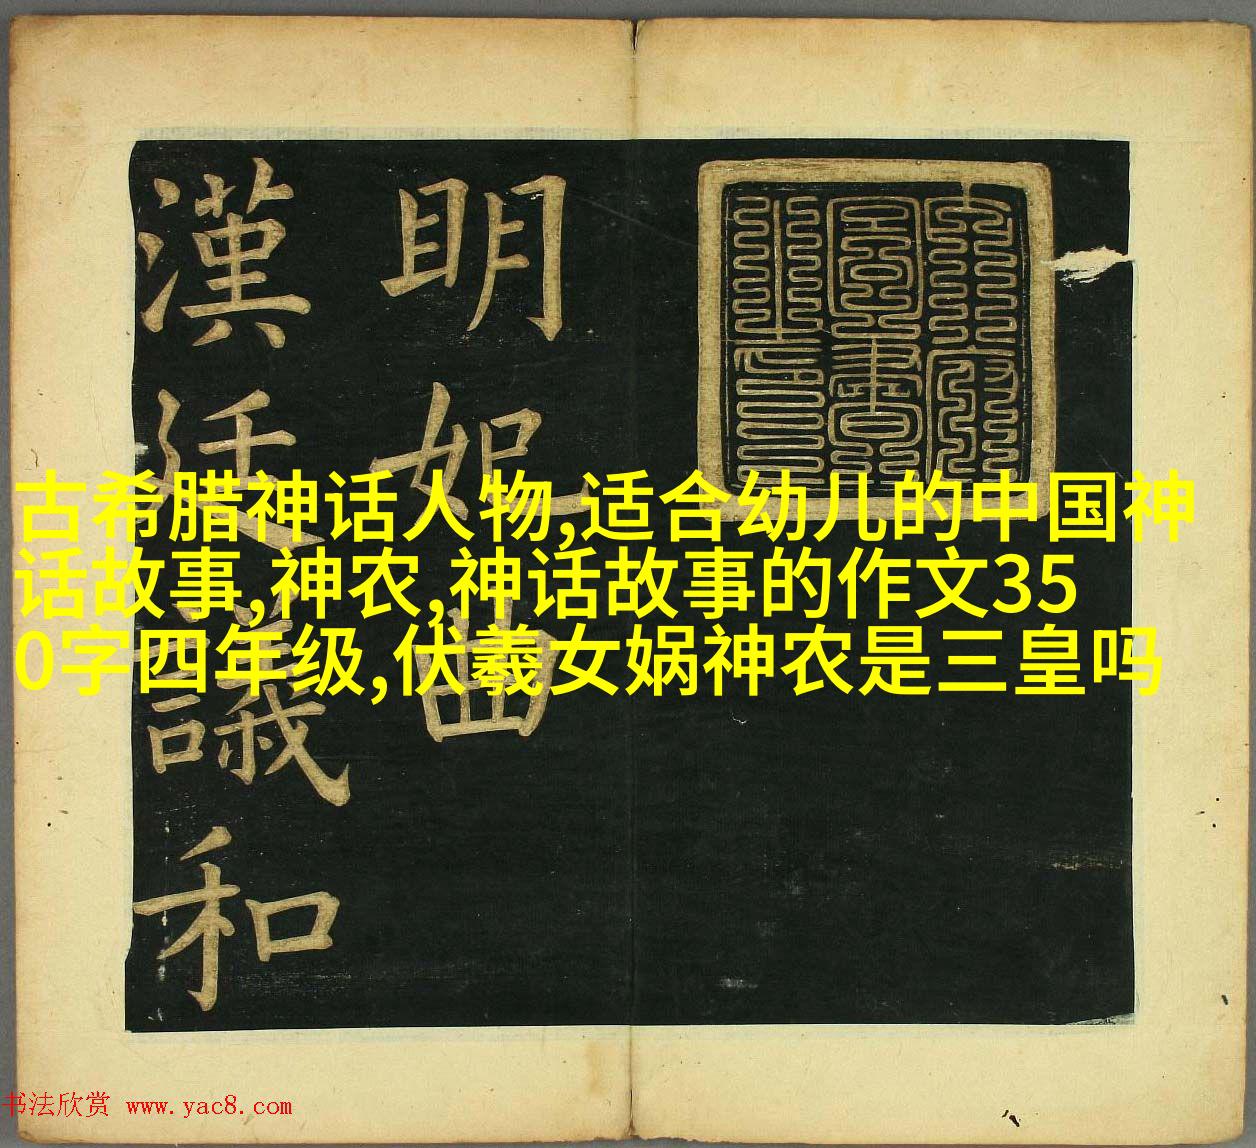 明妃曲
漢廷議和
古希腊神话人物,适合幼儿的中国神
话故事,神农,神话故事的作文35
0字四年级,伏羲女娲神农是三皇吗
书法欣赏 www.yac8.com